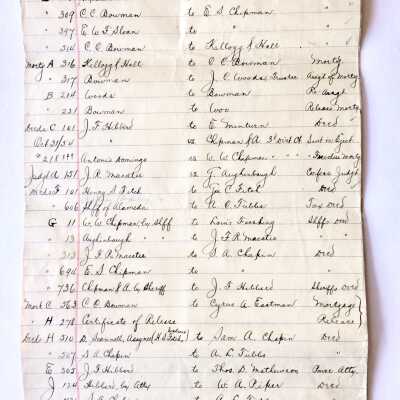 " 309 C. C. Bowman to E. S. Chipman "
" 397 E. W. F. Sloan to "
" 314 C. C. Bowman to Kellogg & Hall "
Mortg A 316 Kellogg & Hall to C. C. Bowman Mortg
" 317 Bowman to J. C. Woods, Trustee Assgt of Mortg
B 214 Woods to Bowman Re Assgt
" 231 Bowman to Release Mortg
Deeds C 101 J. F. Hibberd to E. Minturn Deed
Oct 31/54 vs. Chipman & A 3d Dist Ct Suit in Eject
Antonio Domingo vs. W. W. Chipman " " "
Judgt A 151 J. R. Maester vs. G. Aughinbaugh Confess Judgt
Deeds F 101 Henry S Fitch to Jas C. Fitch Deed
" 606 Shff of Alameda to A C Tubbs Tax Deed
G 11 W. W. Chipman, by Shff to Louis Shffs Deed
" 13 Aughinbaugh " " to J F R Maester "
" 313 J. F. R Maester to S. A. Chapin Deed
" 694 E. S. Chipman to " "
" 736 Chipman & A by Sheriff to J. F. Hibberd Sheriffs Deed
Mort C 363 C. C. Bowman to Cyrus A Eastman Mortgage
" H 278 Certificate of Release Release
Deeds H 310 D. Assignee to Sam A. Chapin Deed
" 307 S A Chapin to A L Tubbs "
E 305 J. F. Hibberd to Thos. D. Mathewson Power Atty.
J 134 Hibberd, by Atty to W. A. Piper Deed
to A. L. Tubbs